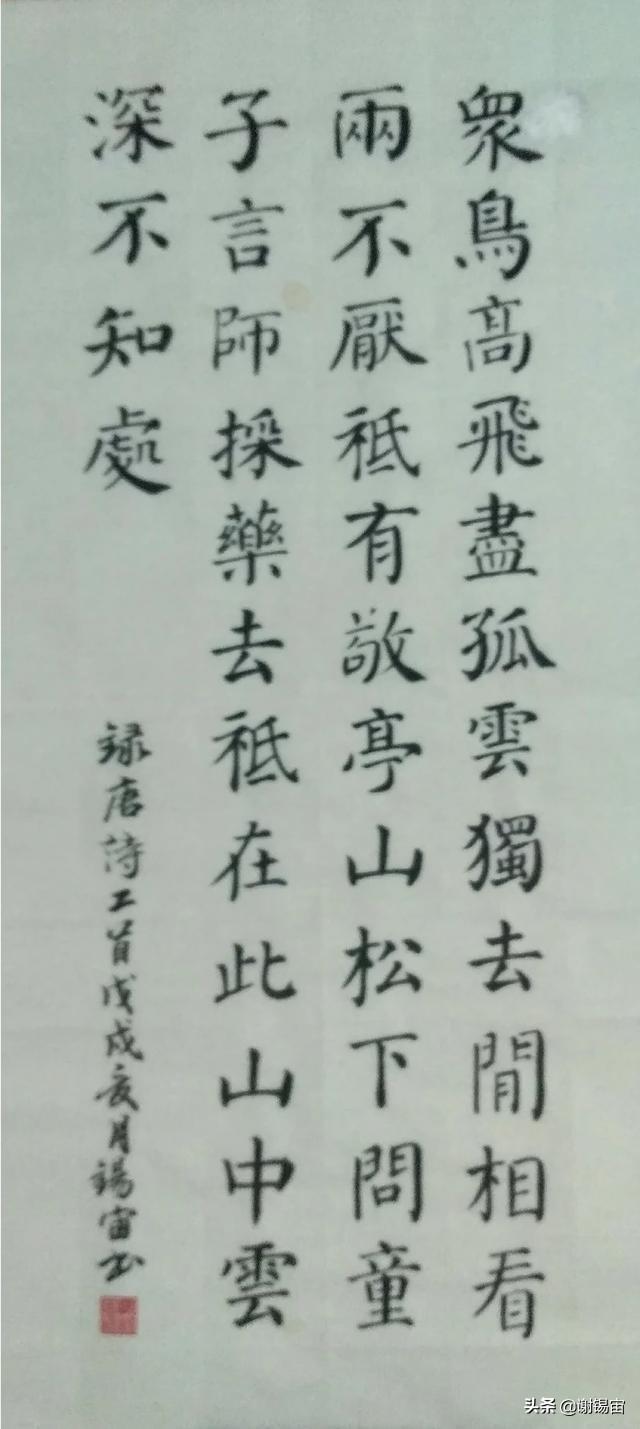 眾鳥高飛盡孤雲獨去閒相看
兩不厭祗有敬亭山松下問童
子言師採藥去祗在此山中雲
深不知處
録唐詩二首戊戌亥月錫宙书
头条 @谢锡宙